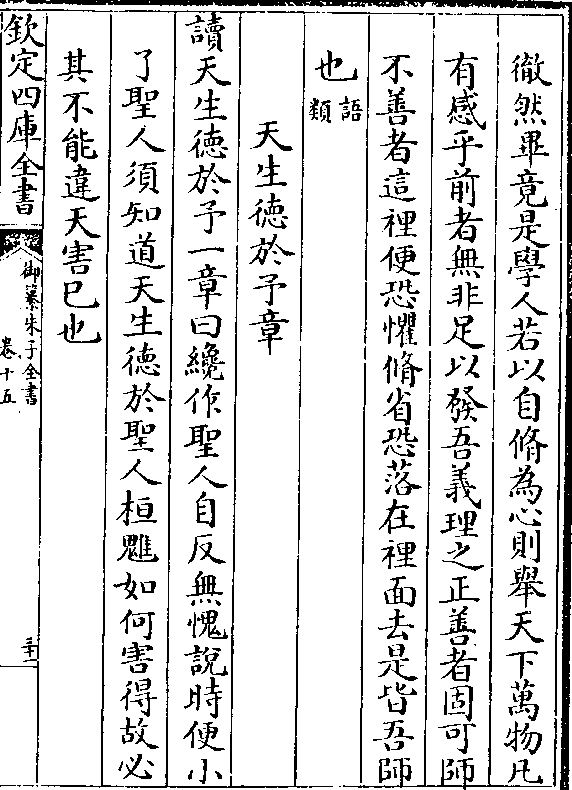 徹然畢竟是學人若以自脩為心則舉天下萬物凡
有感乎前者無非足以發吾義理之正善者固可師
不善者這裡便恐懼脩省恐落在裡面去是皆吾師
也語類
天生德於予章
讀天生德於予一章曰纔作聖人自反無愧說時便小
了聖人須知道天生德於聖人桓魋如何害得故必
其不能違天害已也
欽定四庫全書
御纂朱子全書
卷十五